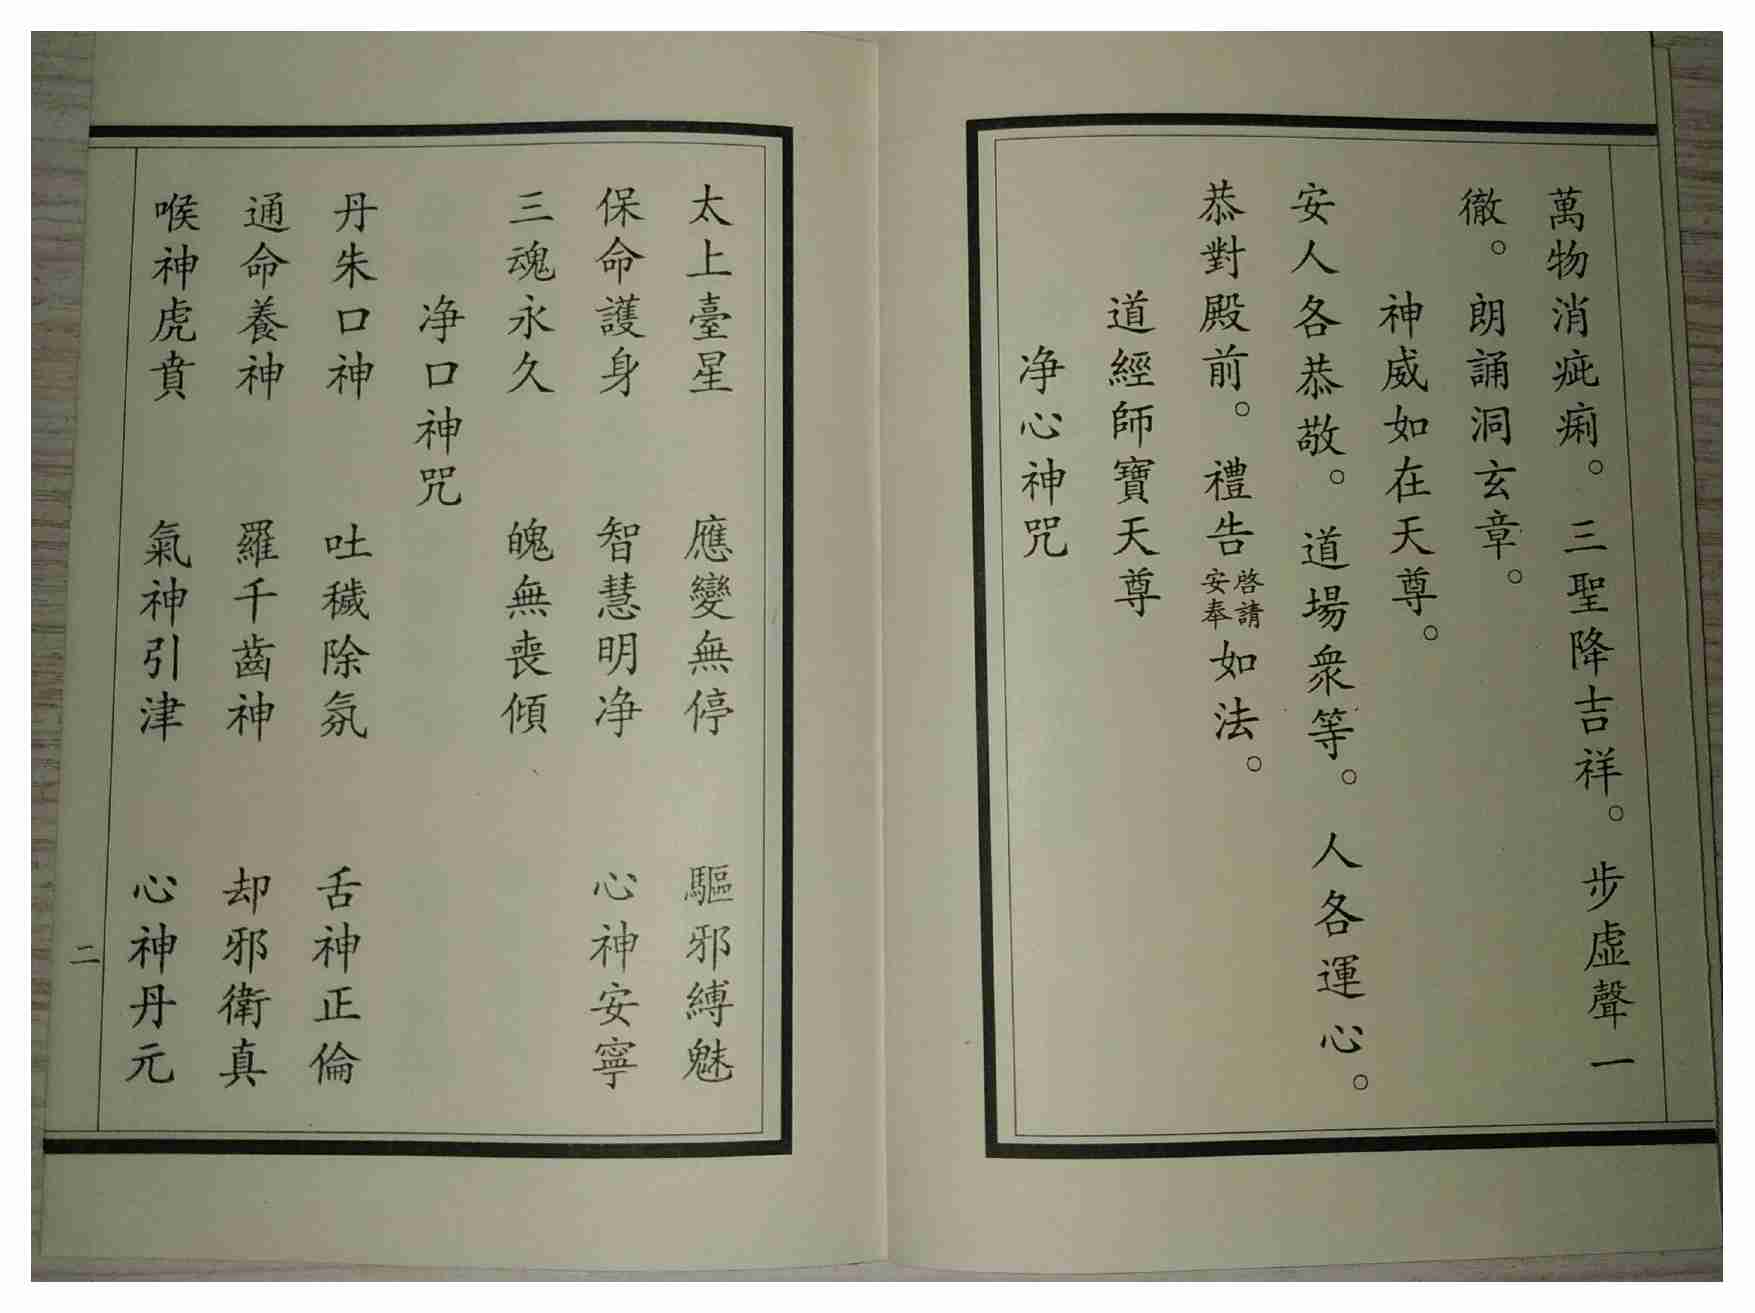 萬物消疵痾。三聖降吉祥。步虛聲一
徹。朗誦洞玄章。
神威如在天尊。
安人各恭敬。道場衆等。人各運心。
恭對殿前。禮告啓請安奉如法。
道經師寶天尊
净心神咒
太上臺星 應變無停 驅邪縛魅
保命護身 智慧明净 心神安寧
三魂永久 魄無喪傾
净口神咒
丹朱口神 吐穢除氛 舌神正倫
通命養神 羅千齒神 却邪衛真
喉神虎賁 氣神引津 心神丹元
二